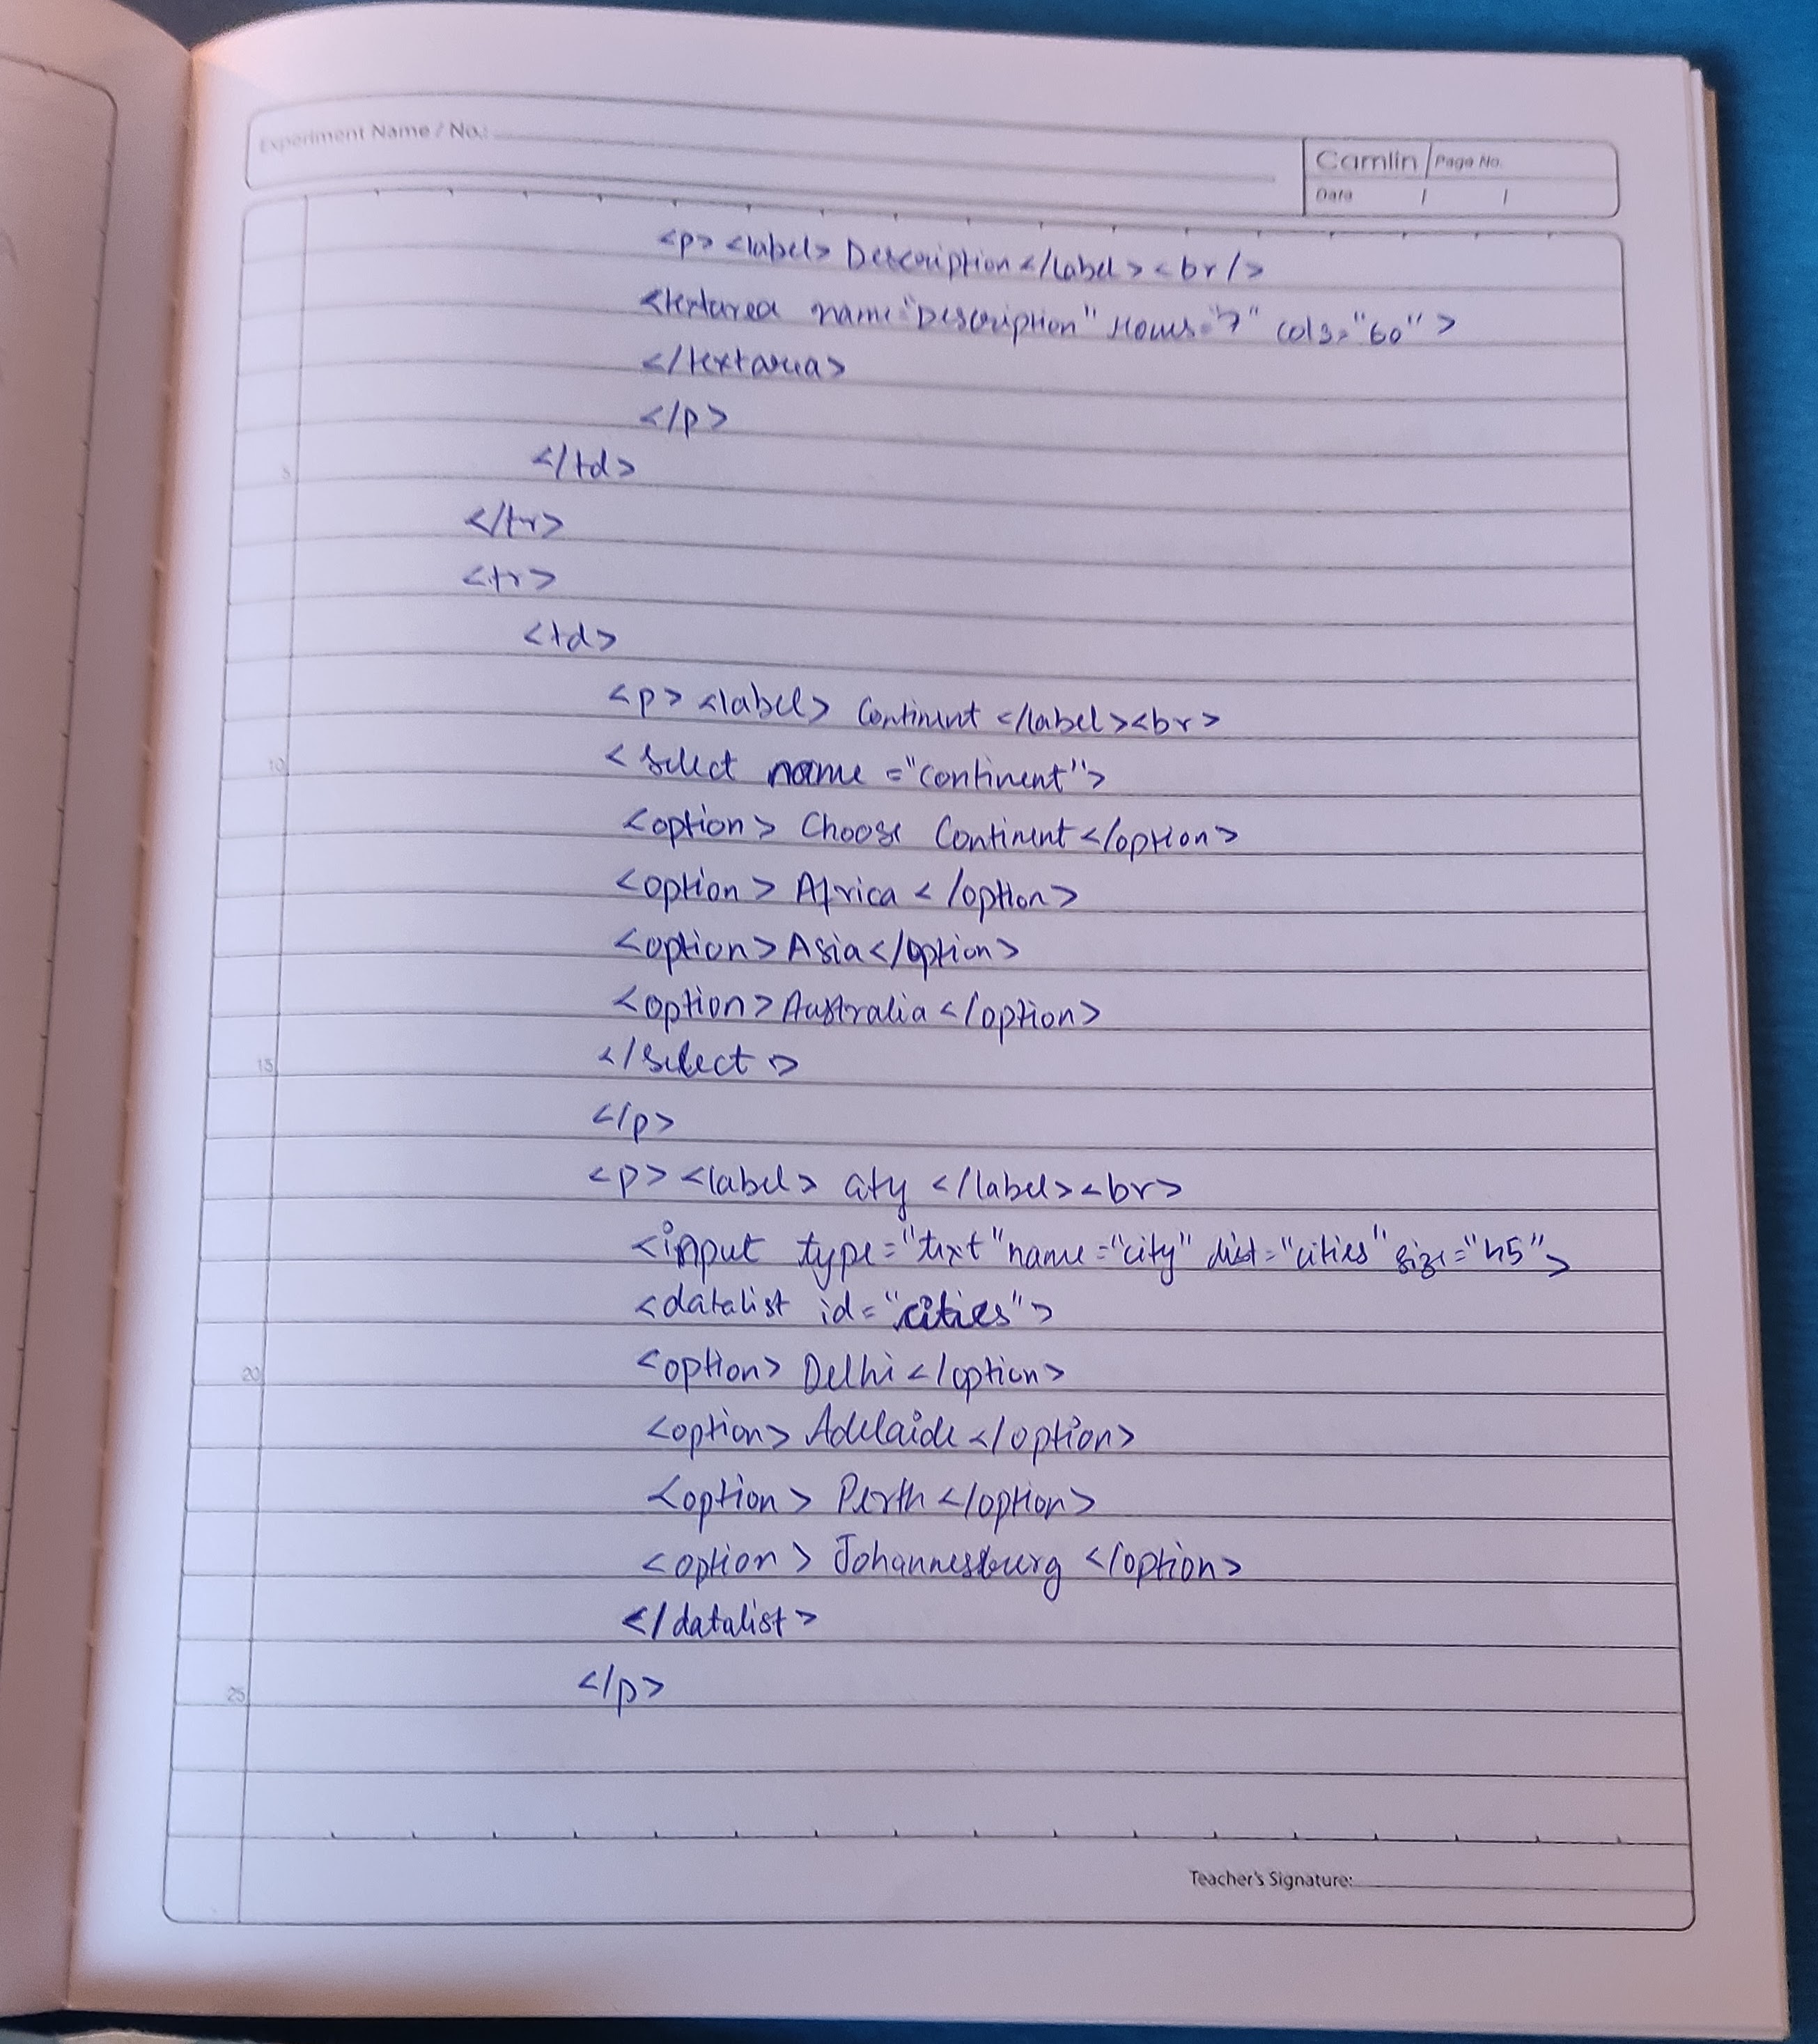 Experiment Name / No.:
Camlin Page No.
Date / /
<p> <label> Description </label> <br/>
<textarea name="Description" rows="7" cols="60">
</textarea>
</p>
5
</td>
</tr>
<tr>
<td>
<p> <label> Continent </label><br>
10
<select name ="continent">
<option> Choose Continent </option>
<option> Africa </option>
<option> Asia </option>
<option> Australia </option>
15
</select>
</p>
<p> <label> City </label><br>
<input type="text" name="city" list="cities" size="45">
<datalist id="cities">
20
<option> Delhi </option>
<option> Adelaide </option>
<option> Perth </option>
<option> Johannesburg </option>
</datalist>
25
</p>
Teacher's Signature: